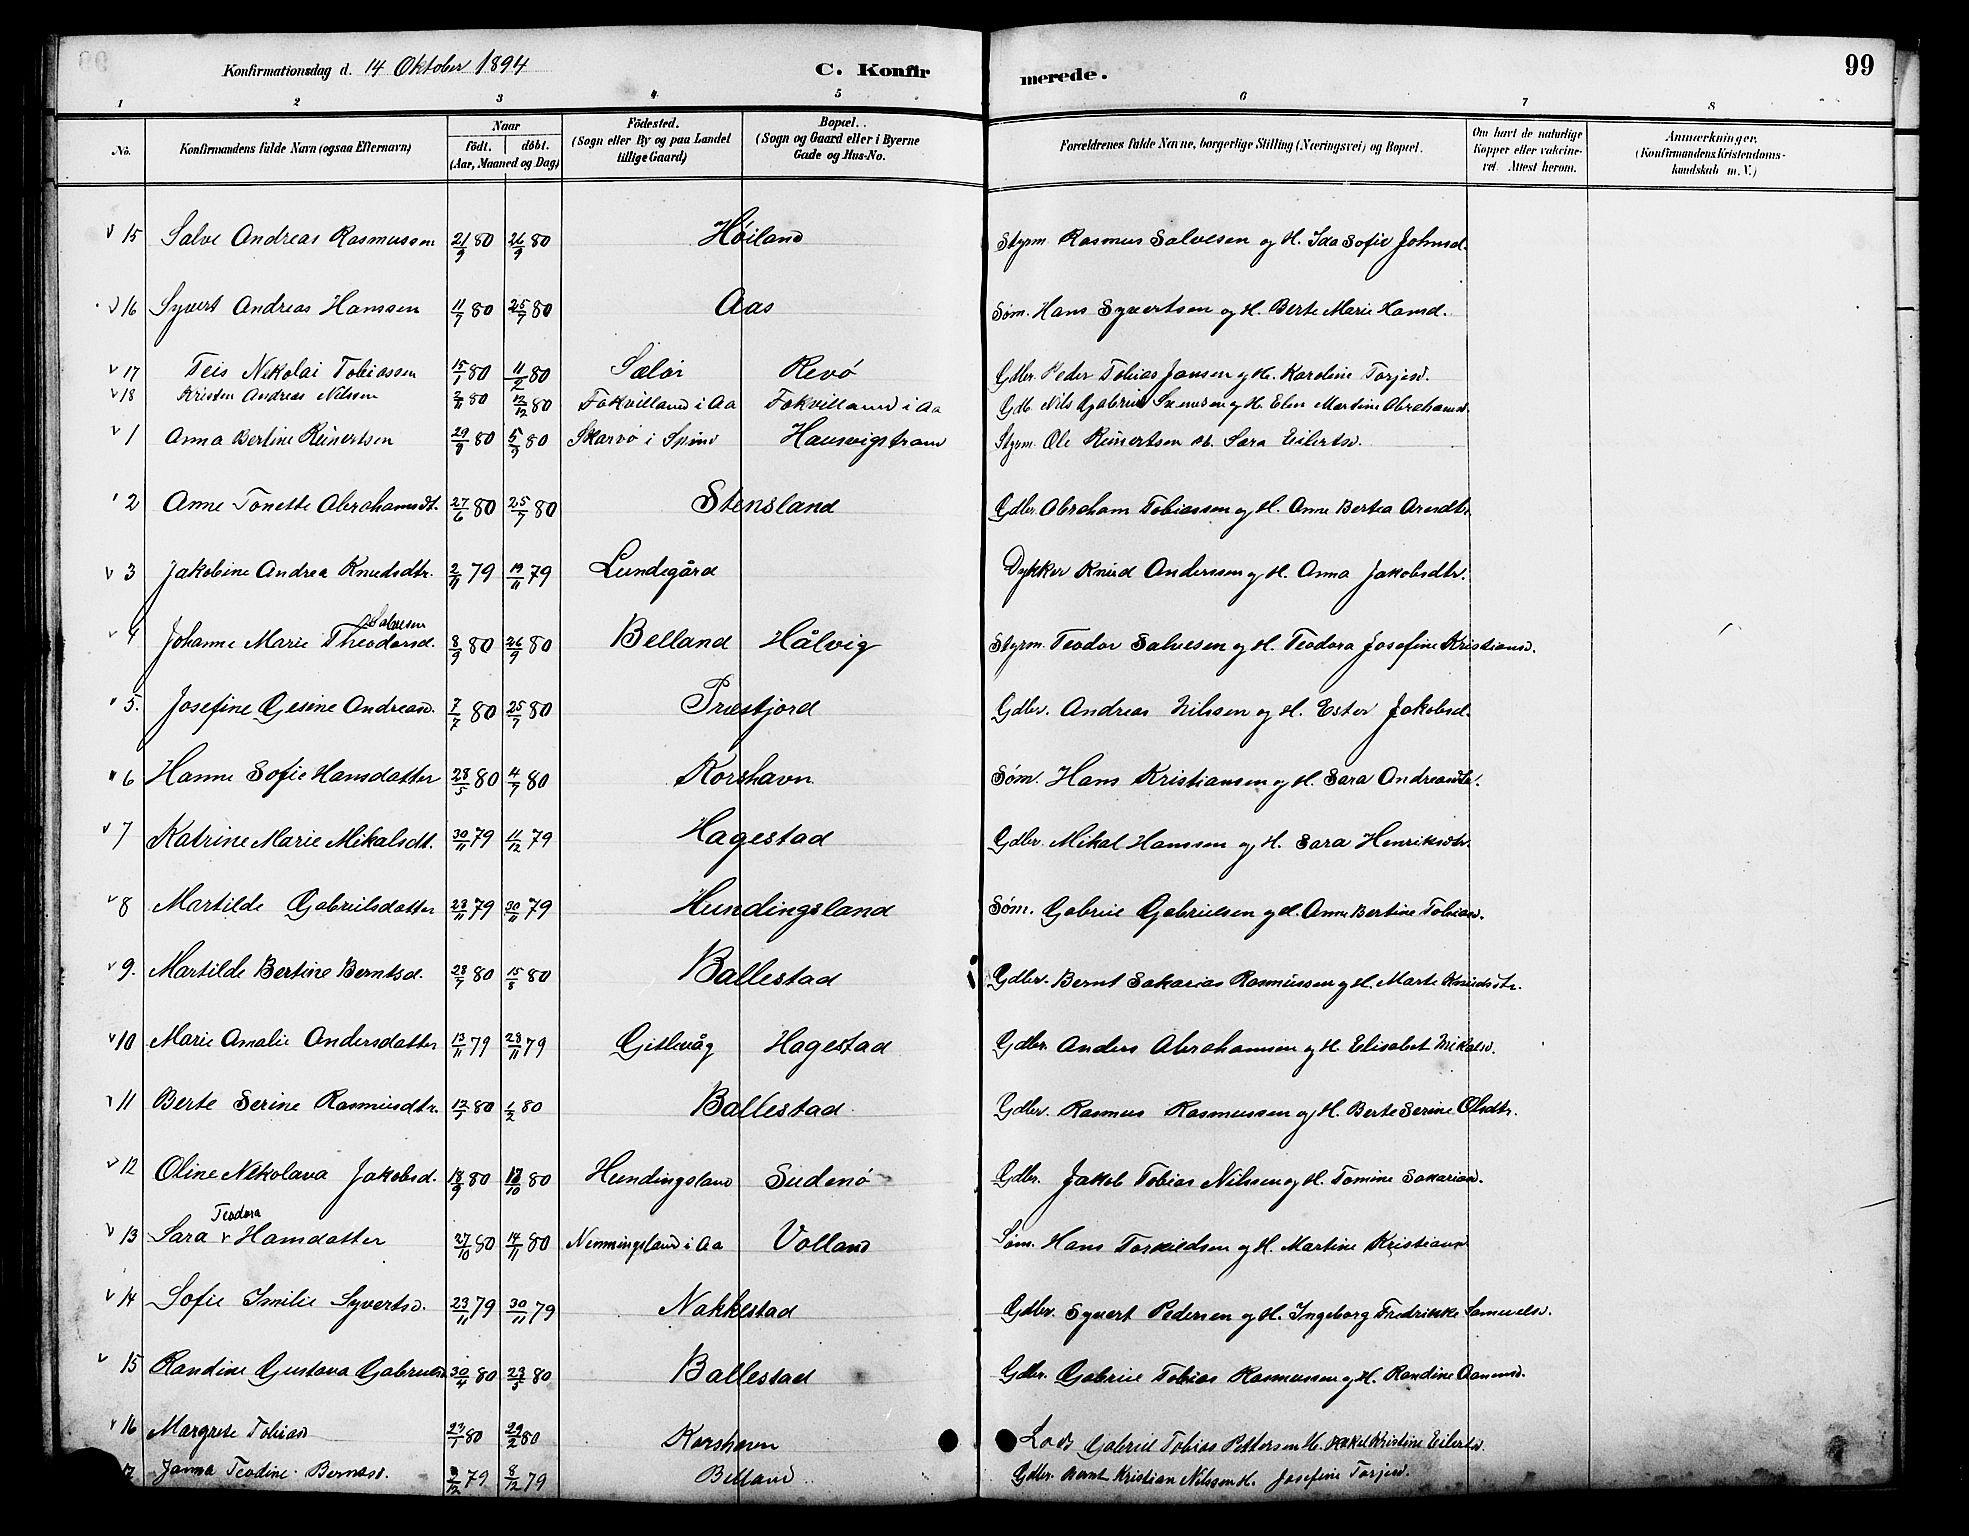 Konfirmationsdag d. 14 Oktober 1894 C. Konfirmerede. 99
1 2 3 4 5 6 7 8
No. Konfirmandens fulde Navn (ogsaa Efternavn) Naar Födt. döbt. (Aar, Maaned og Dag) Födested. (Sogn eller By og paa Landet tillige Gaard) Bopæl. (Sogn og Gaard eller i Byerne Gade og Hus-No. Forældrenes fulde Navne, borgerlige Stilling (Næringsvei) og Bopæl. Om havt de naturlige Kopper eller vakcineret. Attest herom. Anmærkninger, (Konfirmandens Kristendomskundskab m. V.)
v 15 Salve Andreas Rasmussen 21/9 80 26/9 80 Høiland Styrm. Rasmus Salvesen og H. Ida Sofie Johnsd.
v 16 Syvert Andreas Hanssen 11/7 80 25/7 80 Aas Søm. Hans Syvertsen og H. Berte Marie Hansd.
v 17 Teis Nikolai Tobiassen 15/1 80 11/2 80 Sælør Revö Gdbr. Peder Tobias Jansen og H. Karoline Torjesd.
v 18 Kristen Andreas Nilssen 2/11 80 12/12 80 Fokvilland i Aa Fokvilland i Aa Gdb. Nils Gabriel og H. Elen Martine Abrahamsd.
v 1 Anna Bertine Reinertsen 29/8 80 5/9 80 Skarvö i Spind Hausvigstrand Styrm. Ole Reinertsen H. Sara Eilertsd.
2 Anne Tonette Abrahamsdt. 27/6 80 25/7 80 Stensland Gdbr. Abraham Tobiassen og H. Anne Bertea Arndtr.
v 3 Jakobine Andrea Knudsdtr. 2/11 79 19/11 79 Lundegård Dykker Knud Anderssen og H. Anna Jakobsdtr.
v 4 Johanne Marie Theodorsd. Salvesen 8/9 80 26/9 80 Belland Hålvig Styrm. Teodor Salvesen og H. Teodora Josefine Kristiansd.
5. Josefine Gesine Andreasd. 7/7 80 25/7 80 Præstjord Gdbr. Andreas Nilssen og H. Ester Jakobsd.
6 Hanne Sofie Hansdatter 28/5 80 4/7 80 Korshavn Søm. Hans Kristiansen og H. Sara Andreasdtr.
v 7 Katrine Marie Mikalsdt. 30/11 79 11/12 79 Hagestad Gdbr. Mikal Hanssen og H. Sara Henriksdtr.
v 8 Martilde Gabrielsdatter 28/11 79 30/11 79 Hundingsland Søm. Gabriel Gabrielsen og H. Anne Bertine Tobiasd.
v 9. Martilde Bertine Berntsd. 28/7 80 15/8 80 Ballestad Gdbr. Bernt Sakarias Rasmussen og H. Marte Knudsdtr.
v 10 Marie Amalie Andersdatter 13/11 79 28/11 79 Gitlevåg Hagestad Gdbr. Anders Abrahamsen og H. Elisabet Mikalsd.
v 11 Berte Serine Rasmusdtr. 12/1 80 1/2 80 Ballestad Gdbr. Rasmus Rasmussen og H. Berte Serine Olsdtr.
v 12 Oline Nikolava Jakobsd. 18/9 80 17/10 80 Hundingsland Sudenö Gdbr. Jakob Tobias Nilssen og H. Tomine Sakariasd.
v 13 Sara v Hansdatter Teodora 27/10 80 14/11 80 Nenningsland i Aa Volland Søm. Hans Torkildsen og H. Martine Kristiansd
v 14 Sofie Emilie Syvertsd. 23/11 79 30/11 79 Nakkestad Gdbr. Syvert Pedersen og H. Ingeborg Fredrikke Samuelsd.
v 15 Randine Gustava Gabrielsd. 30/4 80 23/5 80 Ballestad Gdbr. Gabriel Tobias Rasmussen og H. Randine Aanensd.
v 16 Margrete Tobiasd 27/1 80 29/2 80 Korshavn Lods Gabriel Tobias Pettersen H. Rakel Kristine Eilertsd.
Janna Teodine Berntsd. 2/12 79 8/12 79 Belland Gdbr. Bernt Kristian Nilssen H. Josefine Torjesd.